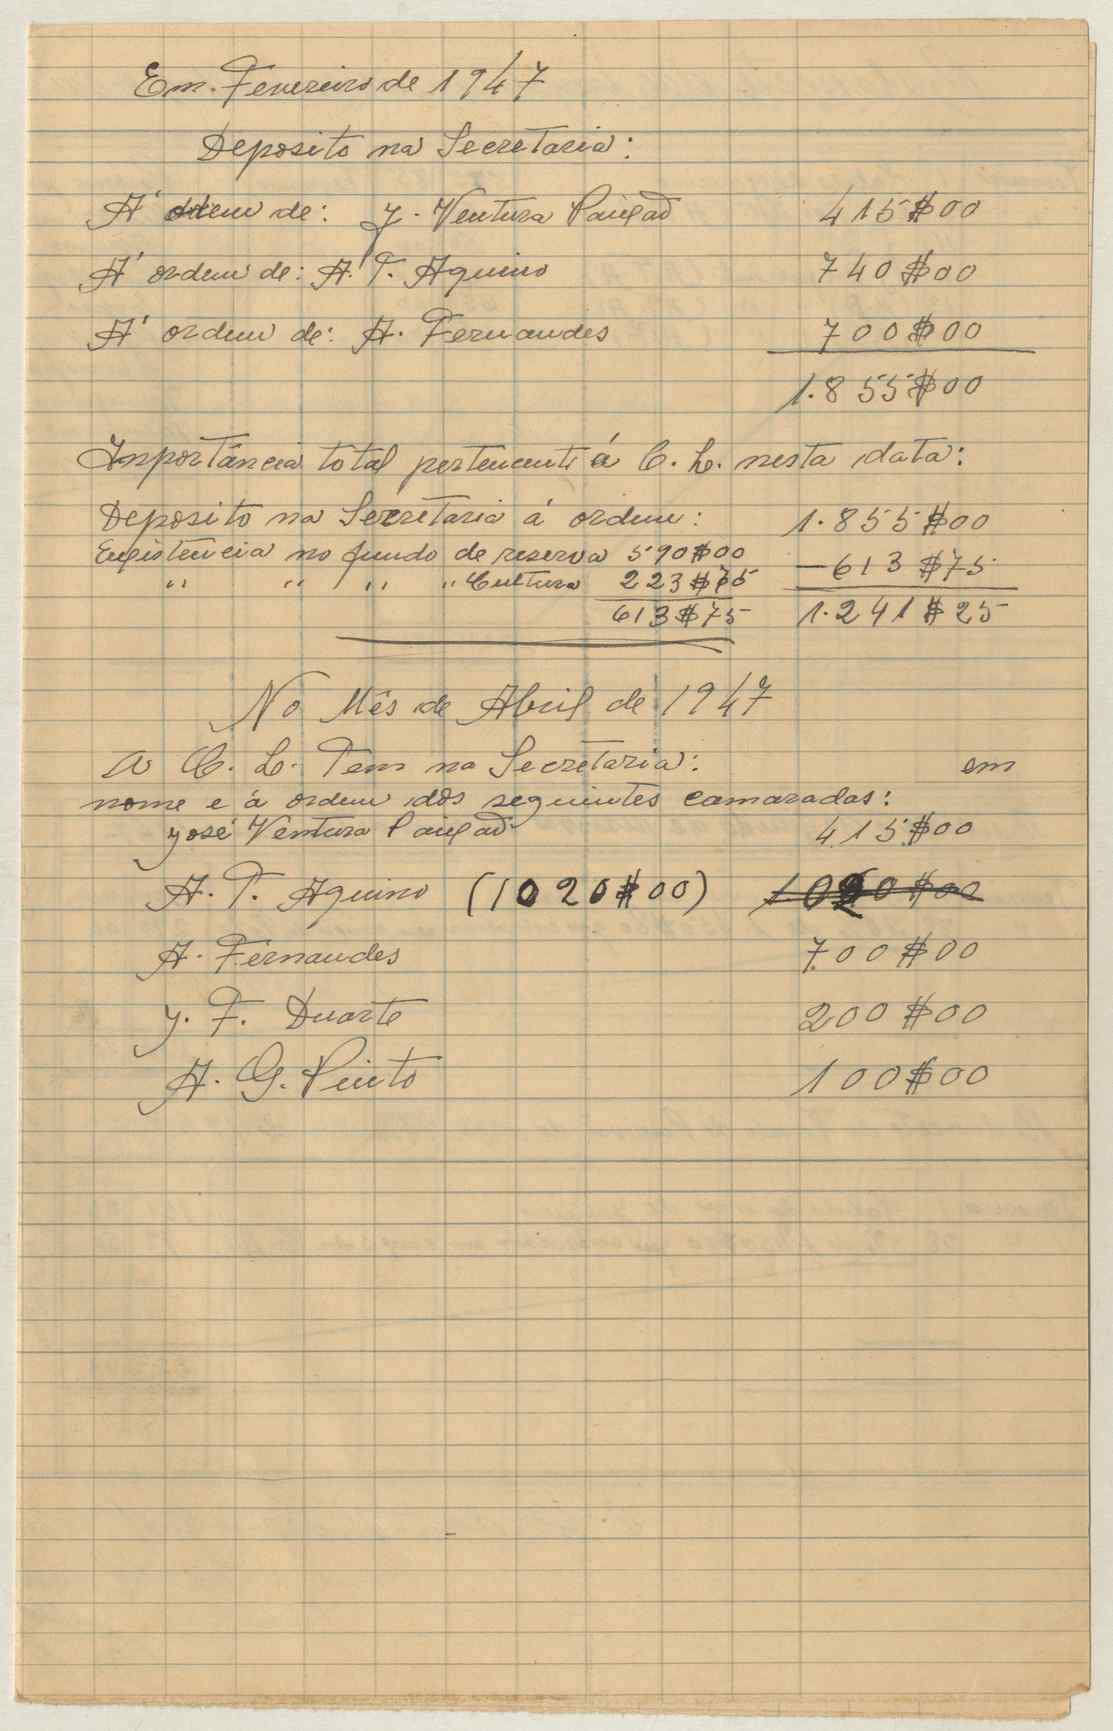 Em. Fevereiro de 1947
Deposito na Secretaria:
A' ordem de: J. Ventura Paixão 415$00
A' ordem de: A. T. Aquino 740$00
A' ordem de: A. Fernandes 700$00
1.855$00
Importância total pertencente á C. L. nesta data:
Deposito na Secretaria á ordem: 1.855$00
Existencia no fundo de reserva 590$00 —613$75
" " " " Cultura 223$75 1.241$25
613$75
No Mês de Abril de 1947
A C. L. Tem na Secretaria: em
nome e á ordem dos seguintes camaradas:
José Ventura Paixão 415$00
A. T. Aquino (1020$00) 1020$00
A. Fernandes 700$00
J. F. Duarte 200$00
A. G. Pinto 100$00